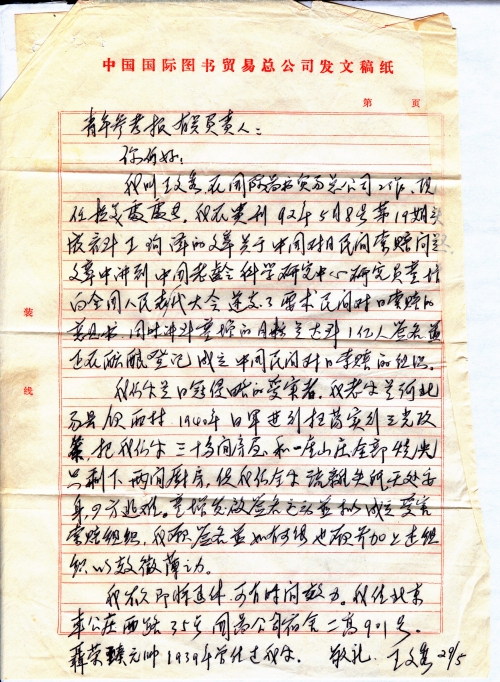 中国国际图书贸易总公司发文稿纸
第 页
青年参考报有关负责人：
你们好：
我叫王文, 在国际图书贸易总公司工作, 现
任 我在贵刊92年5月8号第19期头
版看到 的文章关于中国对日民间索赔问题
文章中讲到中国老龄科学研究中心研究员童增
向全国人民代表大会递交了要求民间对日索赔的
意见书, 同时 童增的目标是达到1亿人签名并
正在酝酿登记成立中国民间对日索赔的组织。
我们家是日寇侵略的受害者。我老家是河北
易县 西村。1940年日军进行扫荡实行三光政
策, 把我们家三十多间房屋和一座山庄全部烧光
只剩下两间厨房, 使我们全家 无处安
身, 四方逃难。童增发起签名 并拟成立受害
索赔组织, 我愿签名并如有可能也愿参加上述组
织以效微薄之力。
我 即将退休, 可有时间效力。我住北京
车公庄西路35号国图公司宿舍二 901号。
聂荣臻元帅1939年曾住过我家。 敬礼 王文 28/5
装
线